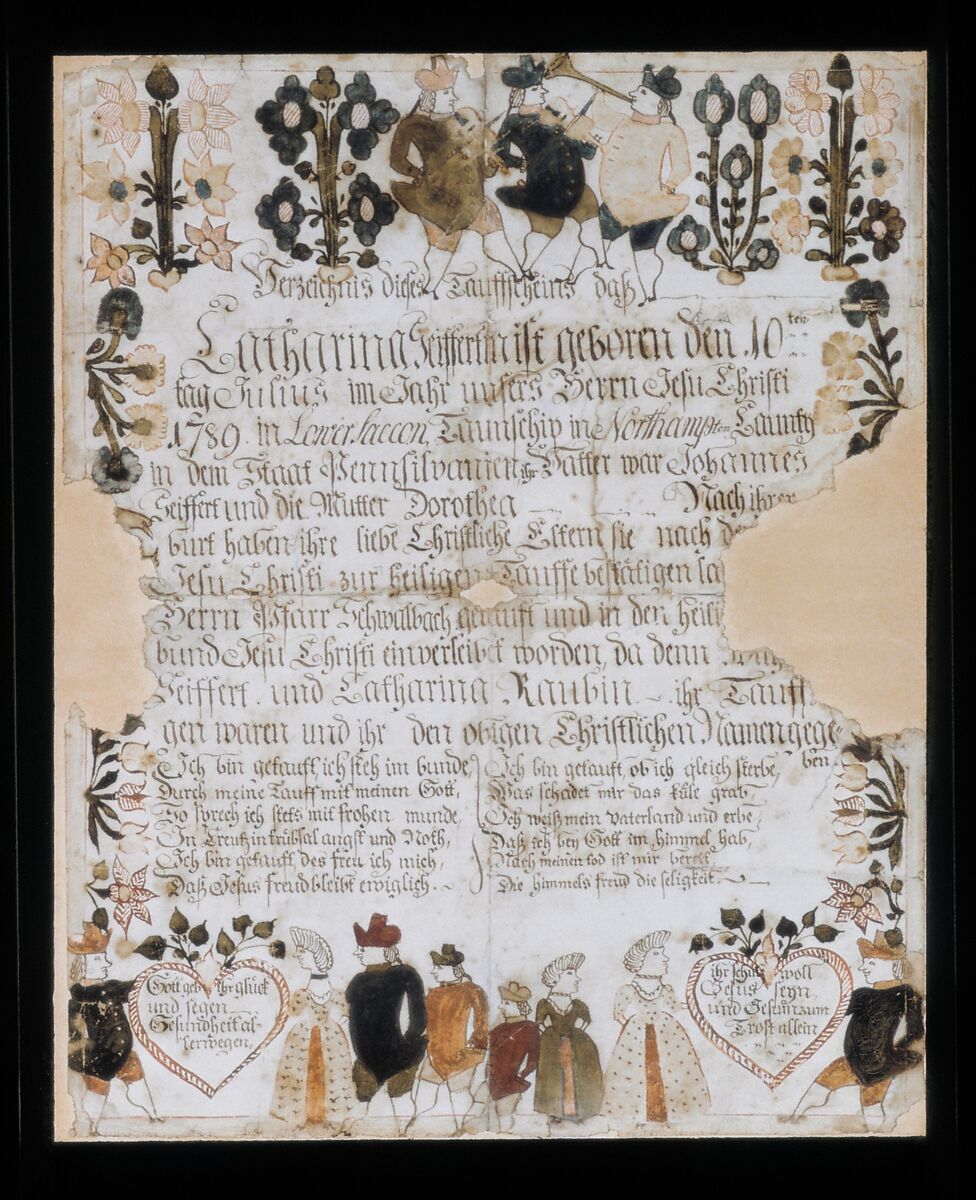 Verzeichnis dieses Tauffscheins daß
Catharina Seiffertin ist geboren den 10ten
tag Julius im Jahr unsers Herrn Jesu Christi
1789. in Lower Saccon, Taunschip in Northampton Caunty
in dem Staat Pennsilvanien ihr Vatter war Johannes
Seiffert und die Mutter Dorothea Nach ihrer
burt haben ihre liebe Christliche Eltern sie nach
Jesu Christi zur heiligen Tauffe bestätigen
Herrn Pfarr Schwalbach getauft und in den
bund Jesu Christi einverleibet worden, da denn
Seiffert und Catharina Raubin ihr Tauff
gen waren und ihr den obigen Christlichen Namen gege
ben
Ich bin getauft, ich steh im bunde
Durch meine Tauff mit meinen Gott,
So sprech ich stets mit frohen munde,
In Creutz in trübsal angst und Noth,
Ich bin getauft des freu ich mich,
Daß Jesus freud bleibt ewiglich.
Ich bin getauft, ob ich gleich sterbe,
Was schadet mir das kale grab,
Ich weiß mein vaterland und erbe,
Daß ich bey Gott im himmel hab,
Nach meinen tod ist mir bereit
Die himmels freud die seligkeit
Gott geb ihr glück
und segen
Gesundheit al-
lerwegen,
ihr schutz woll
Jesus seyn,
und Gestirn zum
Trost allein